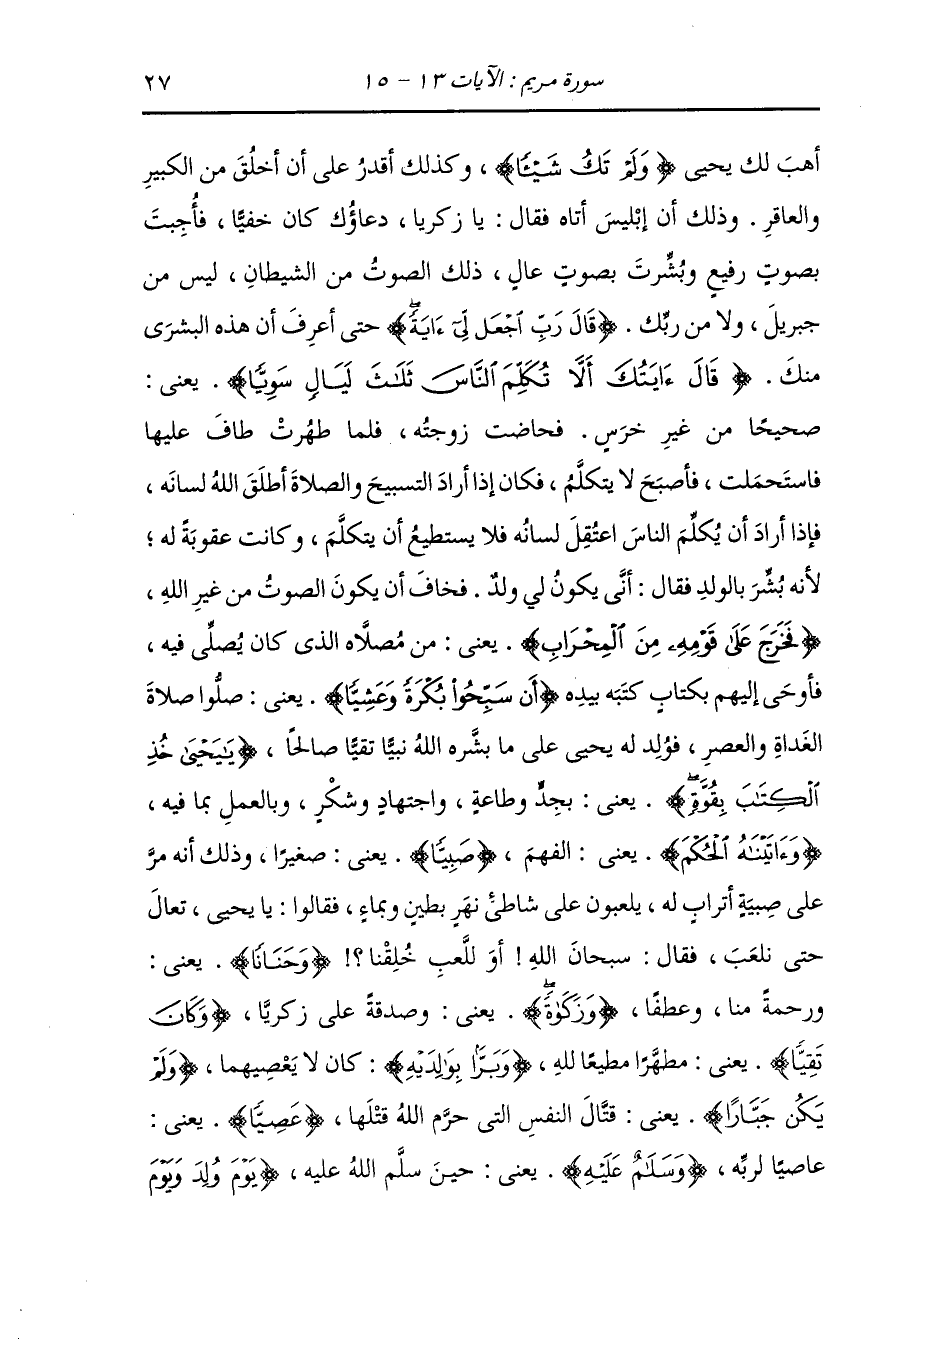 سورة مريم : الآيات ١٣ - ١٥ ٢٧
أهبَ لك يحيى ﴿وَلَمْ تَكُ شَيْـًٔا﴾ ، وكذلك أقدرُ على أن أخلُقَ من الكبيرِ
والعاقرِ . وذلك أن إبْليسَ أتاه فقال : يا زكريا ، دعاؤُك كان خفيًّا ، فأُجِبتَ
بصوتٍ رفيعٍ وبُشِّرتَ بصوتٍ عالٍ ، ذلك الصوتُ من الشيطانِ ، ليس من
جبريلَ ، ولا من ربِّك . ﴿قَالَ رَبِّ ٱجْعَل لِّىٓ ءَايَةًۖ﴾ حتى أعرِفَ أن هذه البشرَى
منكَ . ﴿قَالَ ءَايَتُكَ أَلَّا تُكَلِّمَ ٱلنَّاسَ ثَلَـٰثَ لَيَالٍ سَوِيًّا﴾ . يعنى :
صحيحًا من غيرِ خرَسٍ . فحاضت زوجتُه ، فلما طهُرتْ طافَ عليها
فاستَحمَلت ، فأصبَحَ لا يتكلَّمُ ، فكان إذا أرادَ التسبيحَ والصلاةَ أطلَقَ اللهُ لسانَه ،
فإذا أرادَ أن يُكلِّمَ الناسَ اعتُقِلَ لسانُه فلا يستطيعُ أن يتكلَّمَ ، وكانت عقوبَةً له ؛
لأنه بُشِّرَ بالولدِ فقال : أنَّى يكونُ لي ولدٌ . فخافَ أن يكونَ الصوتُ من غيرِ اللهِ ،
﴿فَخَرَجَ عَلَىٰ قَوْمِهِۦ مِنَ ٱلْمِحْرَابِ﴾ . يعنى : من مُصلَّاه الذى كان يُصلِّى فيه ،
فأوحَى إليهم بكتابٍ كتَبَه بيدِه ﴿أَن سَبِّحُوا۟ بُكْرَةً وَعَشِيًّا﴾ . يعنى : صلُّوا صلاةَ
الغَداةِ والعصرِ ، فوُلِد له يحيى على ما بشَّره اللهُ نبيًّا تقيًّا صالحًا ، ﴿يَـٰيَحْيَىٰ خُذِ
ٱلْكِتَـٰبَ بِقُوَّةٍۖ﴾ . يعنى : بجِدٍّ وطاعةٍ ، واجتهادٍ وشكْرٍ ، وبالعملِ بما فيه ،
﴿وَءَاتَيْنَـٰهُ ٱلْحُكْمَ﴾ . يعنى : الفهمَ ، ﴿صَبِيًّا﴾ . يعنى : صغيرًا ، وذلك أنه مرَّ
على صِبيَةٍ أترابٍ له ، يلعبون على شاطئِ نهَرٍ بطينٍ وبماءٍ ، فقالوا : يا يحيى ، تعالَ
حتى نلعَبَ ، فقال : سبحانَ اللهِ ! أوَ للَّعبِ خُلِقْنا ؟! ﴿وَحَنَانًا﴾ . يعنى :
ورحمةً منا ، وعطفًا ، ﴿وَزَكَوٰةًۖ﴾ . يعنى : وصدقةً على زكريَّا ، ﴿وَكَانَ
تَقِيًّا﴾ . يعنى : مطهَّرًا مطيعًا للهِ ، ﴿وَبَرًّۢا بِوَٰلِدَيْهِ﴾ : كان لا يَعْصِيهما ، ﴿وَلَمْ
يَكُن جَبَّارًا﴾ . يعنى : قتَّالَ النفسِ التى حرَّم اللهُ قتْلَها ، ﴿عَصِيًّا﴾ . يعنى :
عاصيًا لربِّه ، ﴿وَسَلَـٰمٌ عَلَيْهِ﴾ . يعنى : حينَ سلَّم اللهُ عليه ، ﴿يَوْمَ وُلِدَ وَيَوْمَ